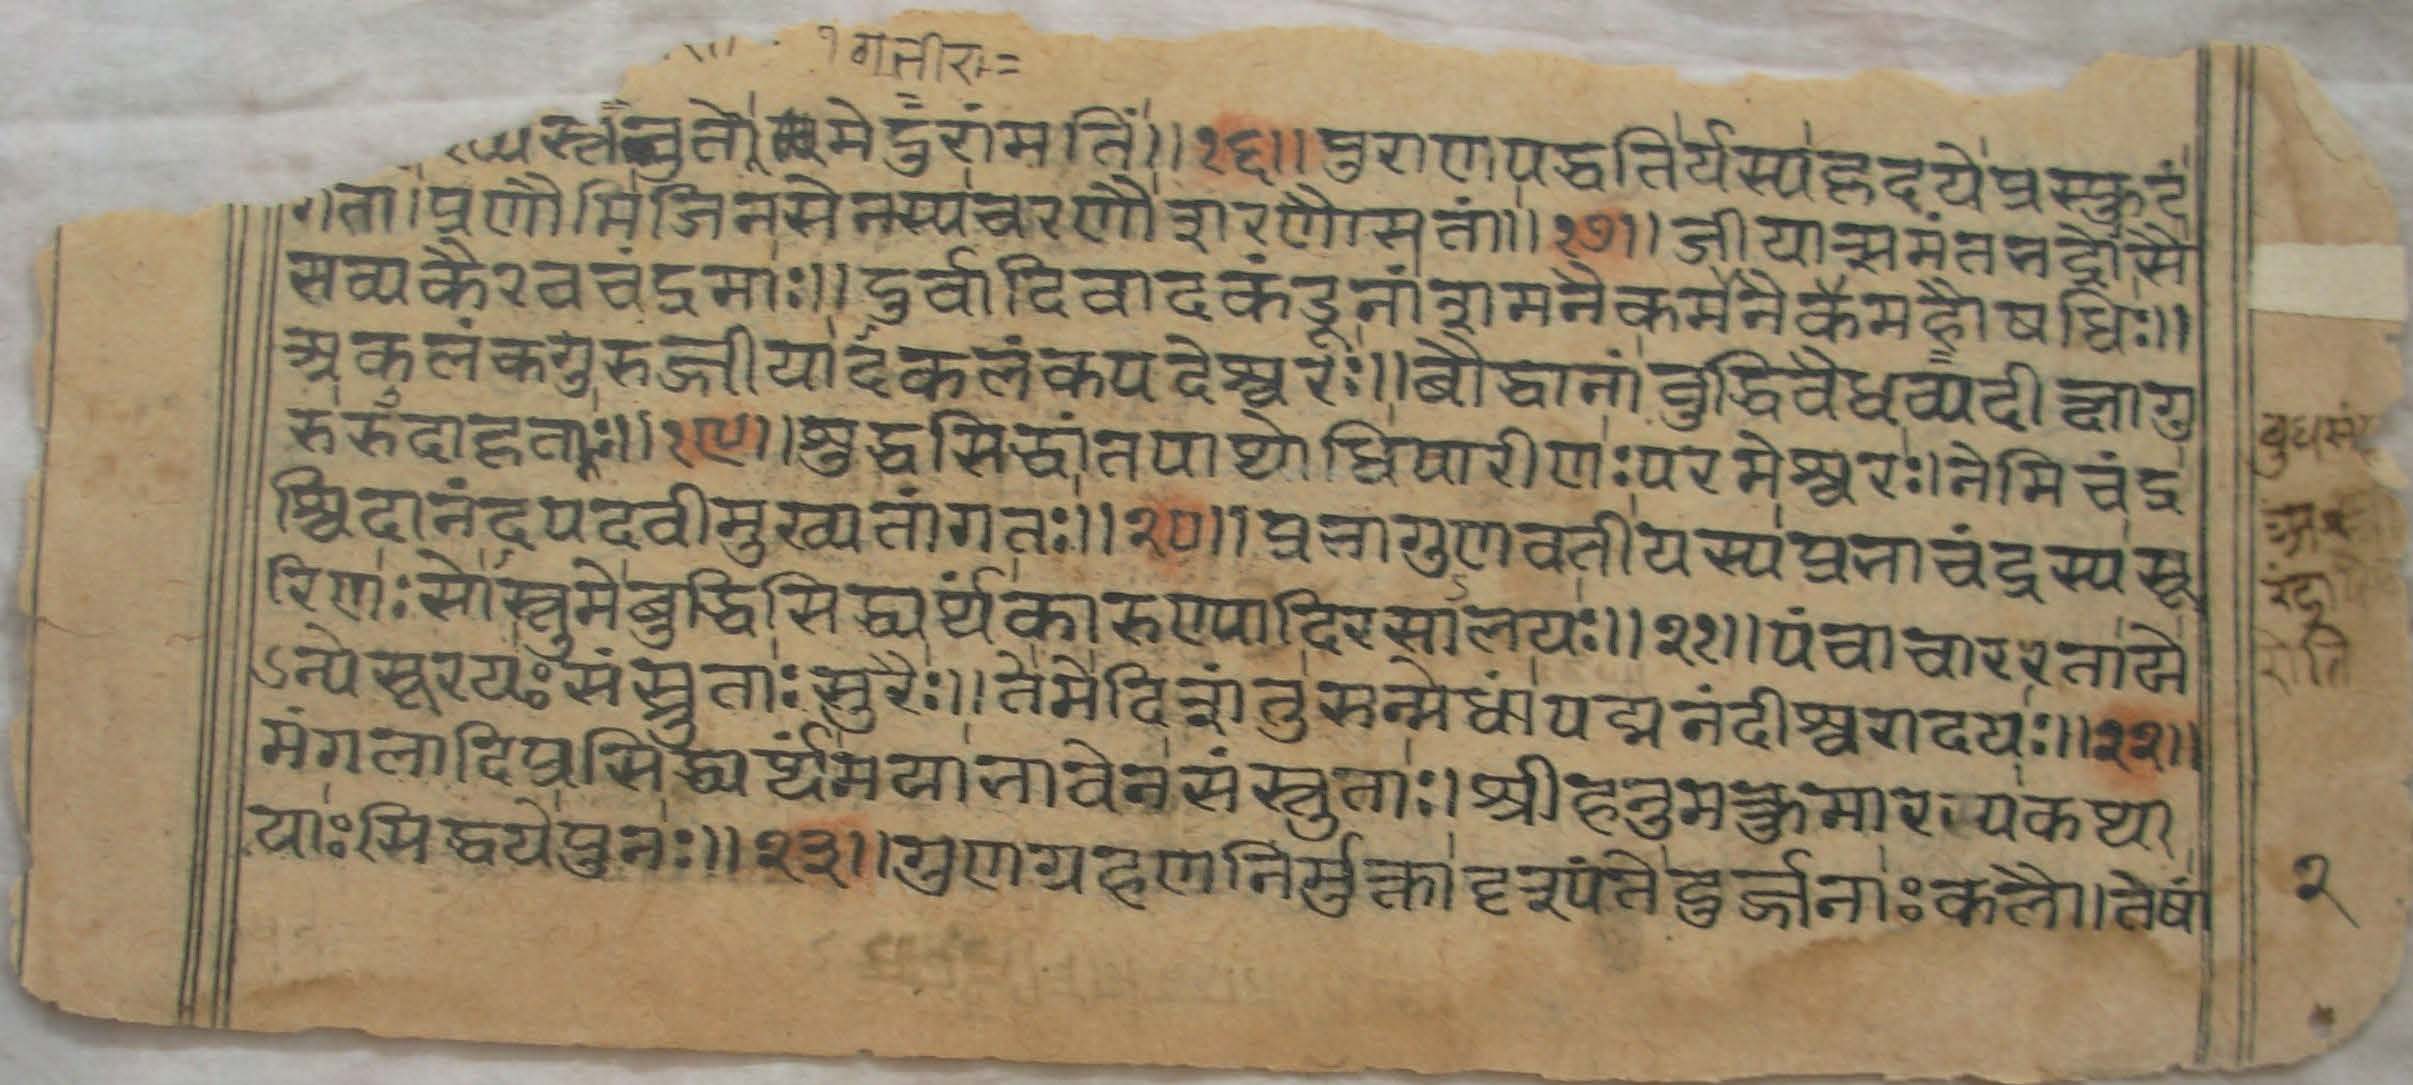 १ गतीरा=
मेदुरां मतिं ॥ १६ ॥ पुराणपद्धतिर्यस्य हृदये प्रस्फुटं
गता । प्रणौमि जिनसेनस्य चरणौ शरणौ सतां ॥ १७ ॥ जीयात्समंतभद्रोसौ
भव्यकैरवचंद्रमाः ॥ दुर्वादिवादकंडूनां शमनैकमहौषधिः ॥
अकलंकगुरुर्जीयादकलंकपदेश्वरः ॥ बौद्धानां बुद्धिवैधव्यदीक्षागु
रुरुदाहृतः ॥ १९ ॥ शुद्धसिद्धांतपाथोधिपारीणः परमेश्वरः । नेमिचंद्र
श्चिदानंदपदवीमुख्यतां गतः ॥ २० ॥ प्रभागुणवती यस्य प्रभाचंद्रस्य सू
रिणः सोस्तु मे बुद्धिसिद्ध्यर्थं कारुण्यादिरसालयः ॥ २१ ॥ पंचाचाररता ये
ऽन्ये सूरयः संस्तुताः सुरैः ॥ ते मे दिशंतु सन्मेधां पद्मनंदीश्वरादयः ॥ २२ ॥
मंगलादिप्रसिद्ध्यर्थं मया भावेन संस्तुताः । श्रीहनुमत्कुमारस्य कथा
याः सिद्धये पुनः ॥ २३ ॥ गुणग्रहणनिर्मुक्ता दृश्यंते दुर्जनाः कलौ । तेषां
२